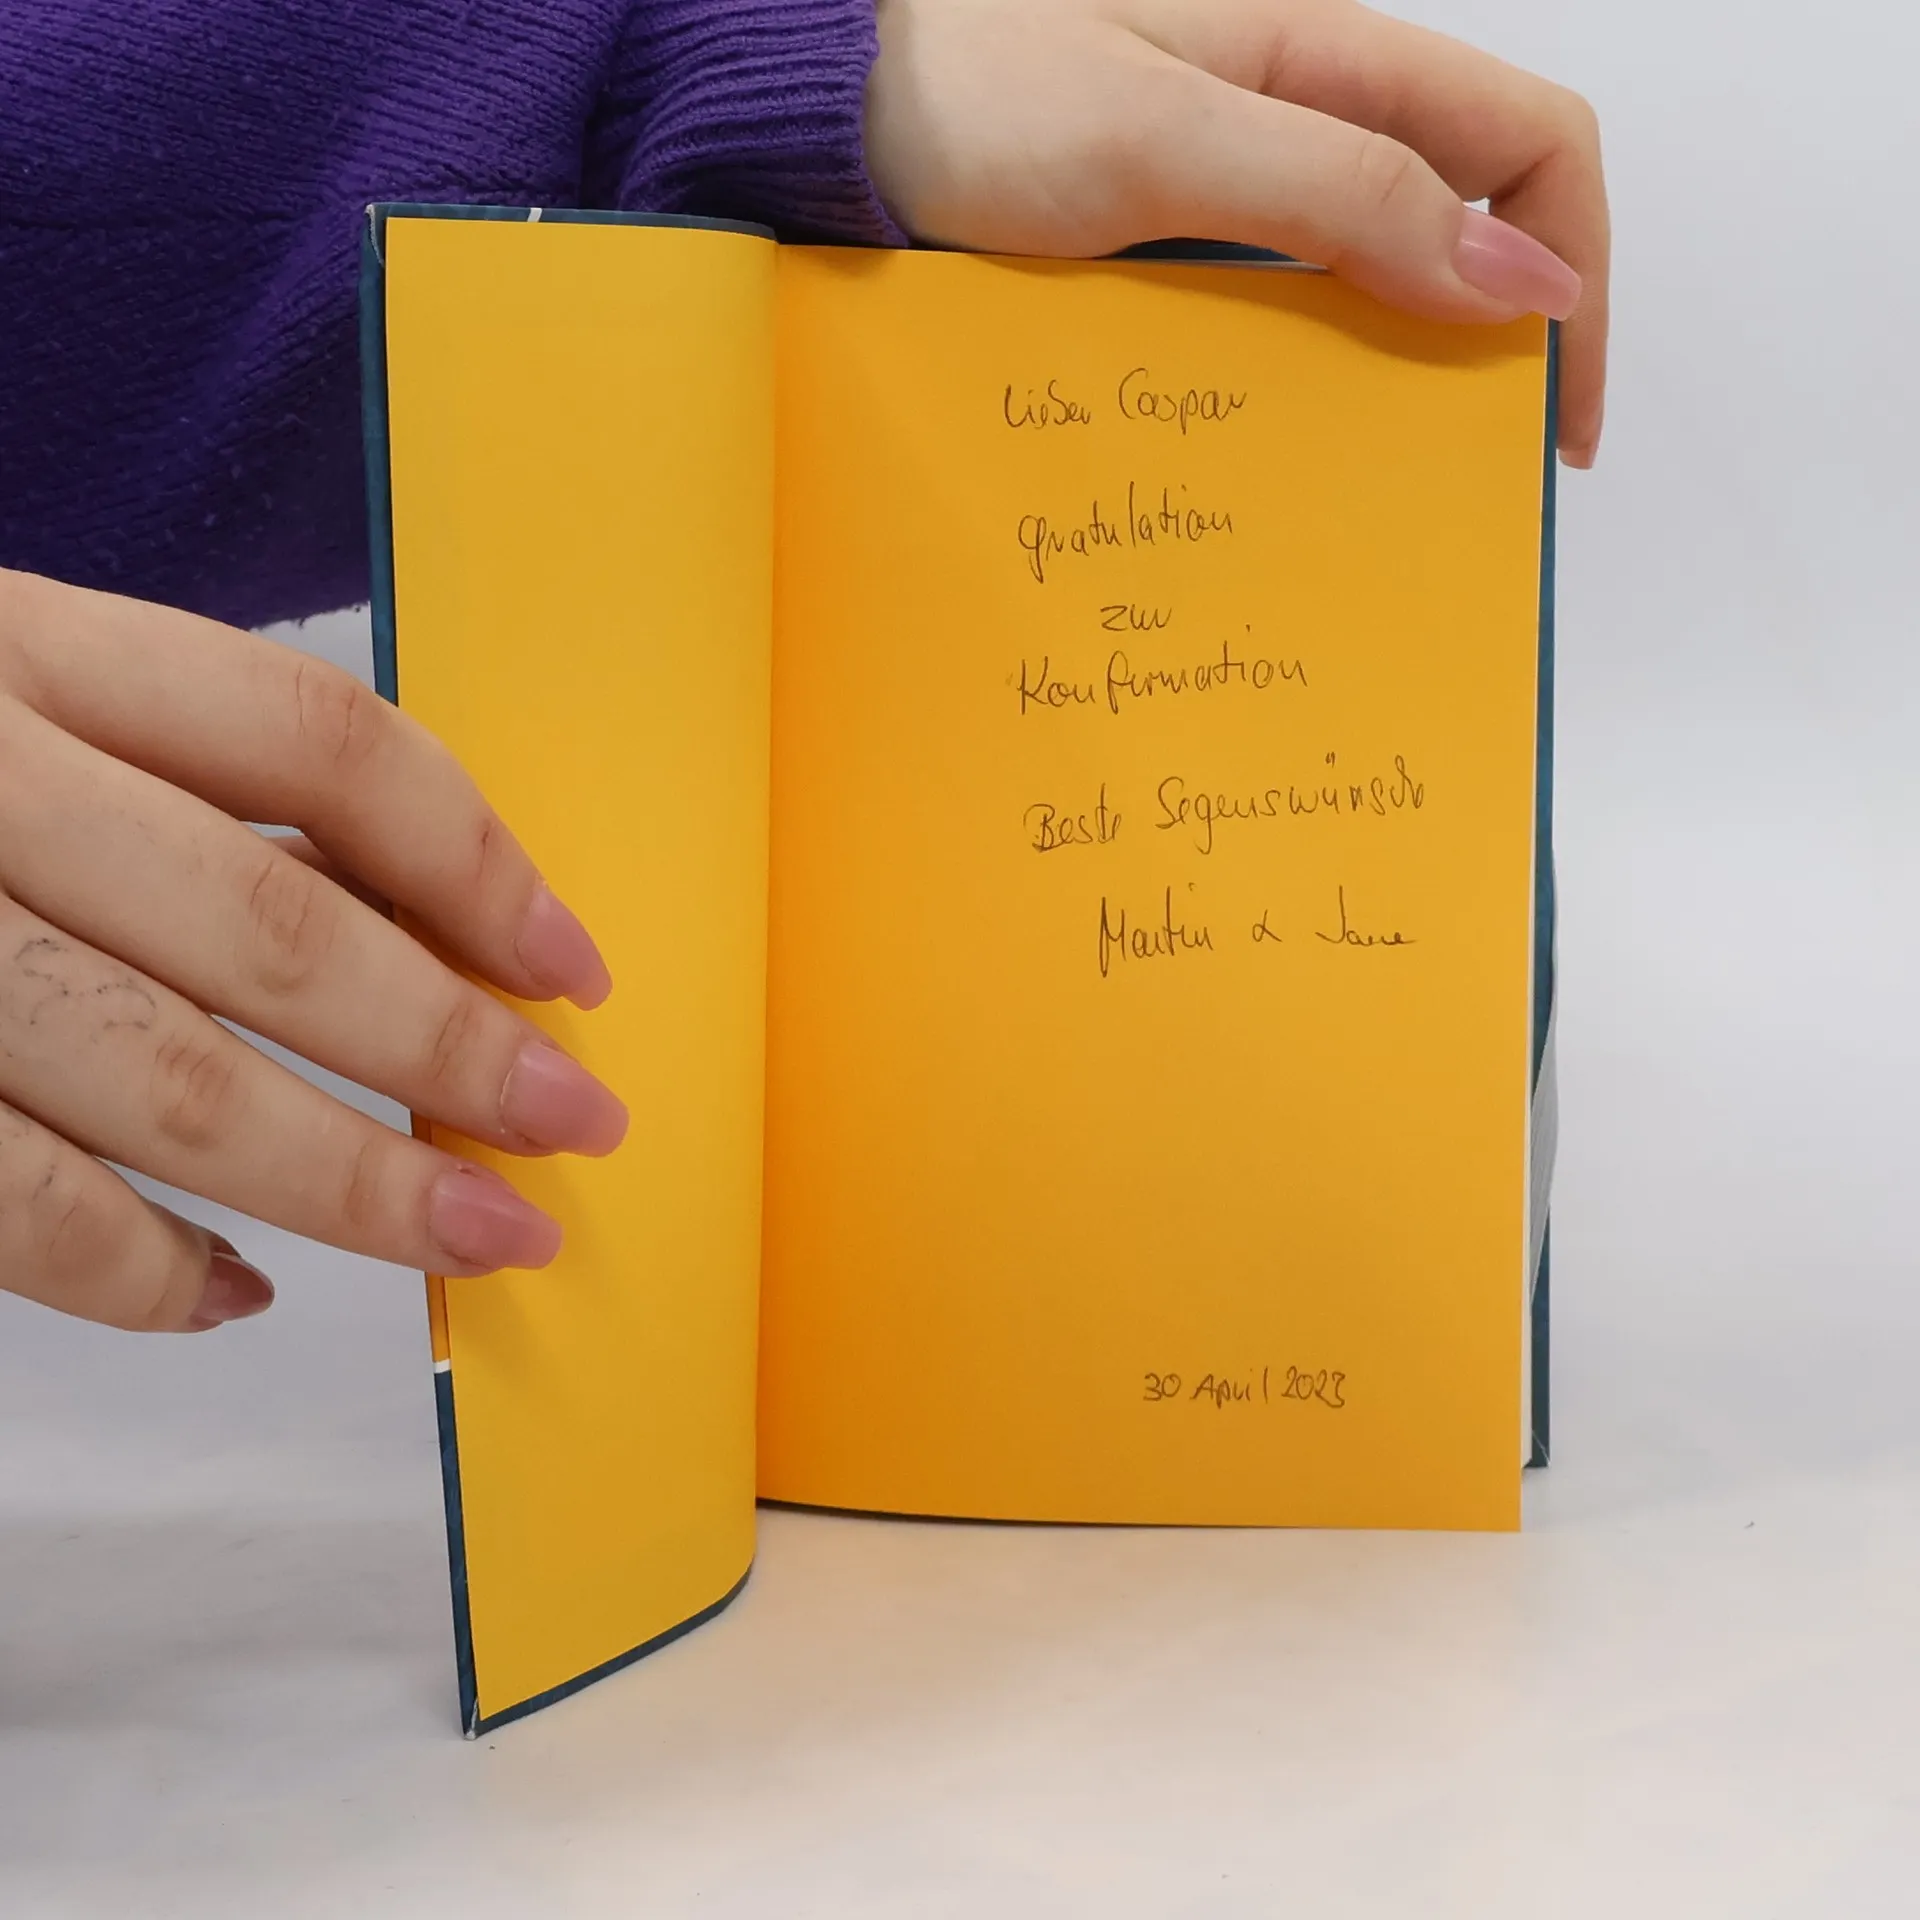 Lieber Caspar
gratulation
zur
Konfirmation
Beste Segenswünsche
Martin & Jane
30 April 2023